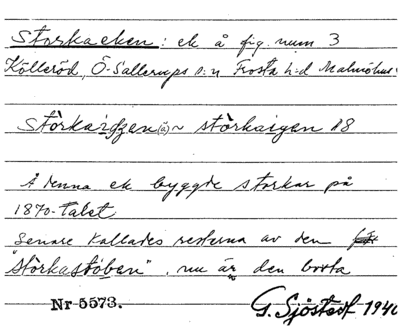 Storkaeken: ek å fig. num 3
Kölleröd, Ö-Sallerups s:n Frosta h:d Malmöhus-
Stòrkaidzen(ä)~ stòrkaigen 18
Å denna ek byggde storkar på
1870-talet
Senare kallades resterna av den
"Stòrkastòben". nu är den borta
Nr 5573. G. Sjöstedt 1940